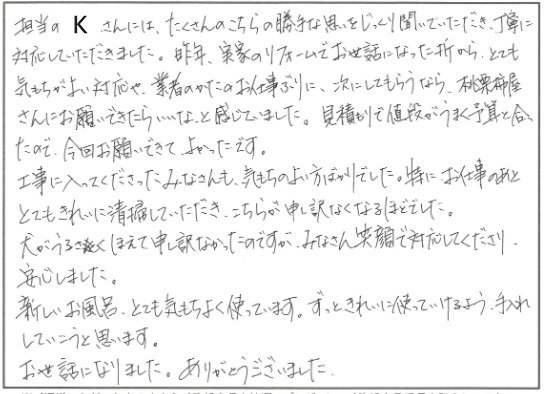 担当の K さんには、たくさんのこちらの勝手な思いをじっくり聞いていただき、丁寧に
対応していただきました。昨年、実家のリフォームでお世話になった折から、とても
気もちがよい対応や、業者のかたのお仕事ぶりに、次にしてもらうなら、桃栗柿屋
さんにお願いできたらいいな、と感じていました。見積もりで値段がうまく予算と合っ
たので、今回お願いできて、よかったです。
工事に入ってくださったみなさんも、気もちのよい方ばかりでした。特に、お仕事のあと
とてもきれいに清掃していただき、こちらが申し訳なくなるほどでした。
犬がうるさくほえて申し訳なかったのですが、みなさん笑顔で対応してくださり、
安心しました。
新しいお風呂、とても気もちよく使っています。ずっときれいに使っていけるよう、手入れ
していこうと思います。
お世話になりました。ありがとうございました。